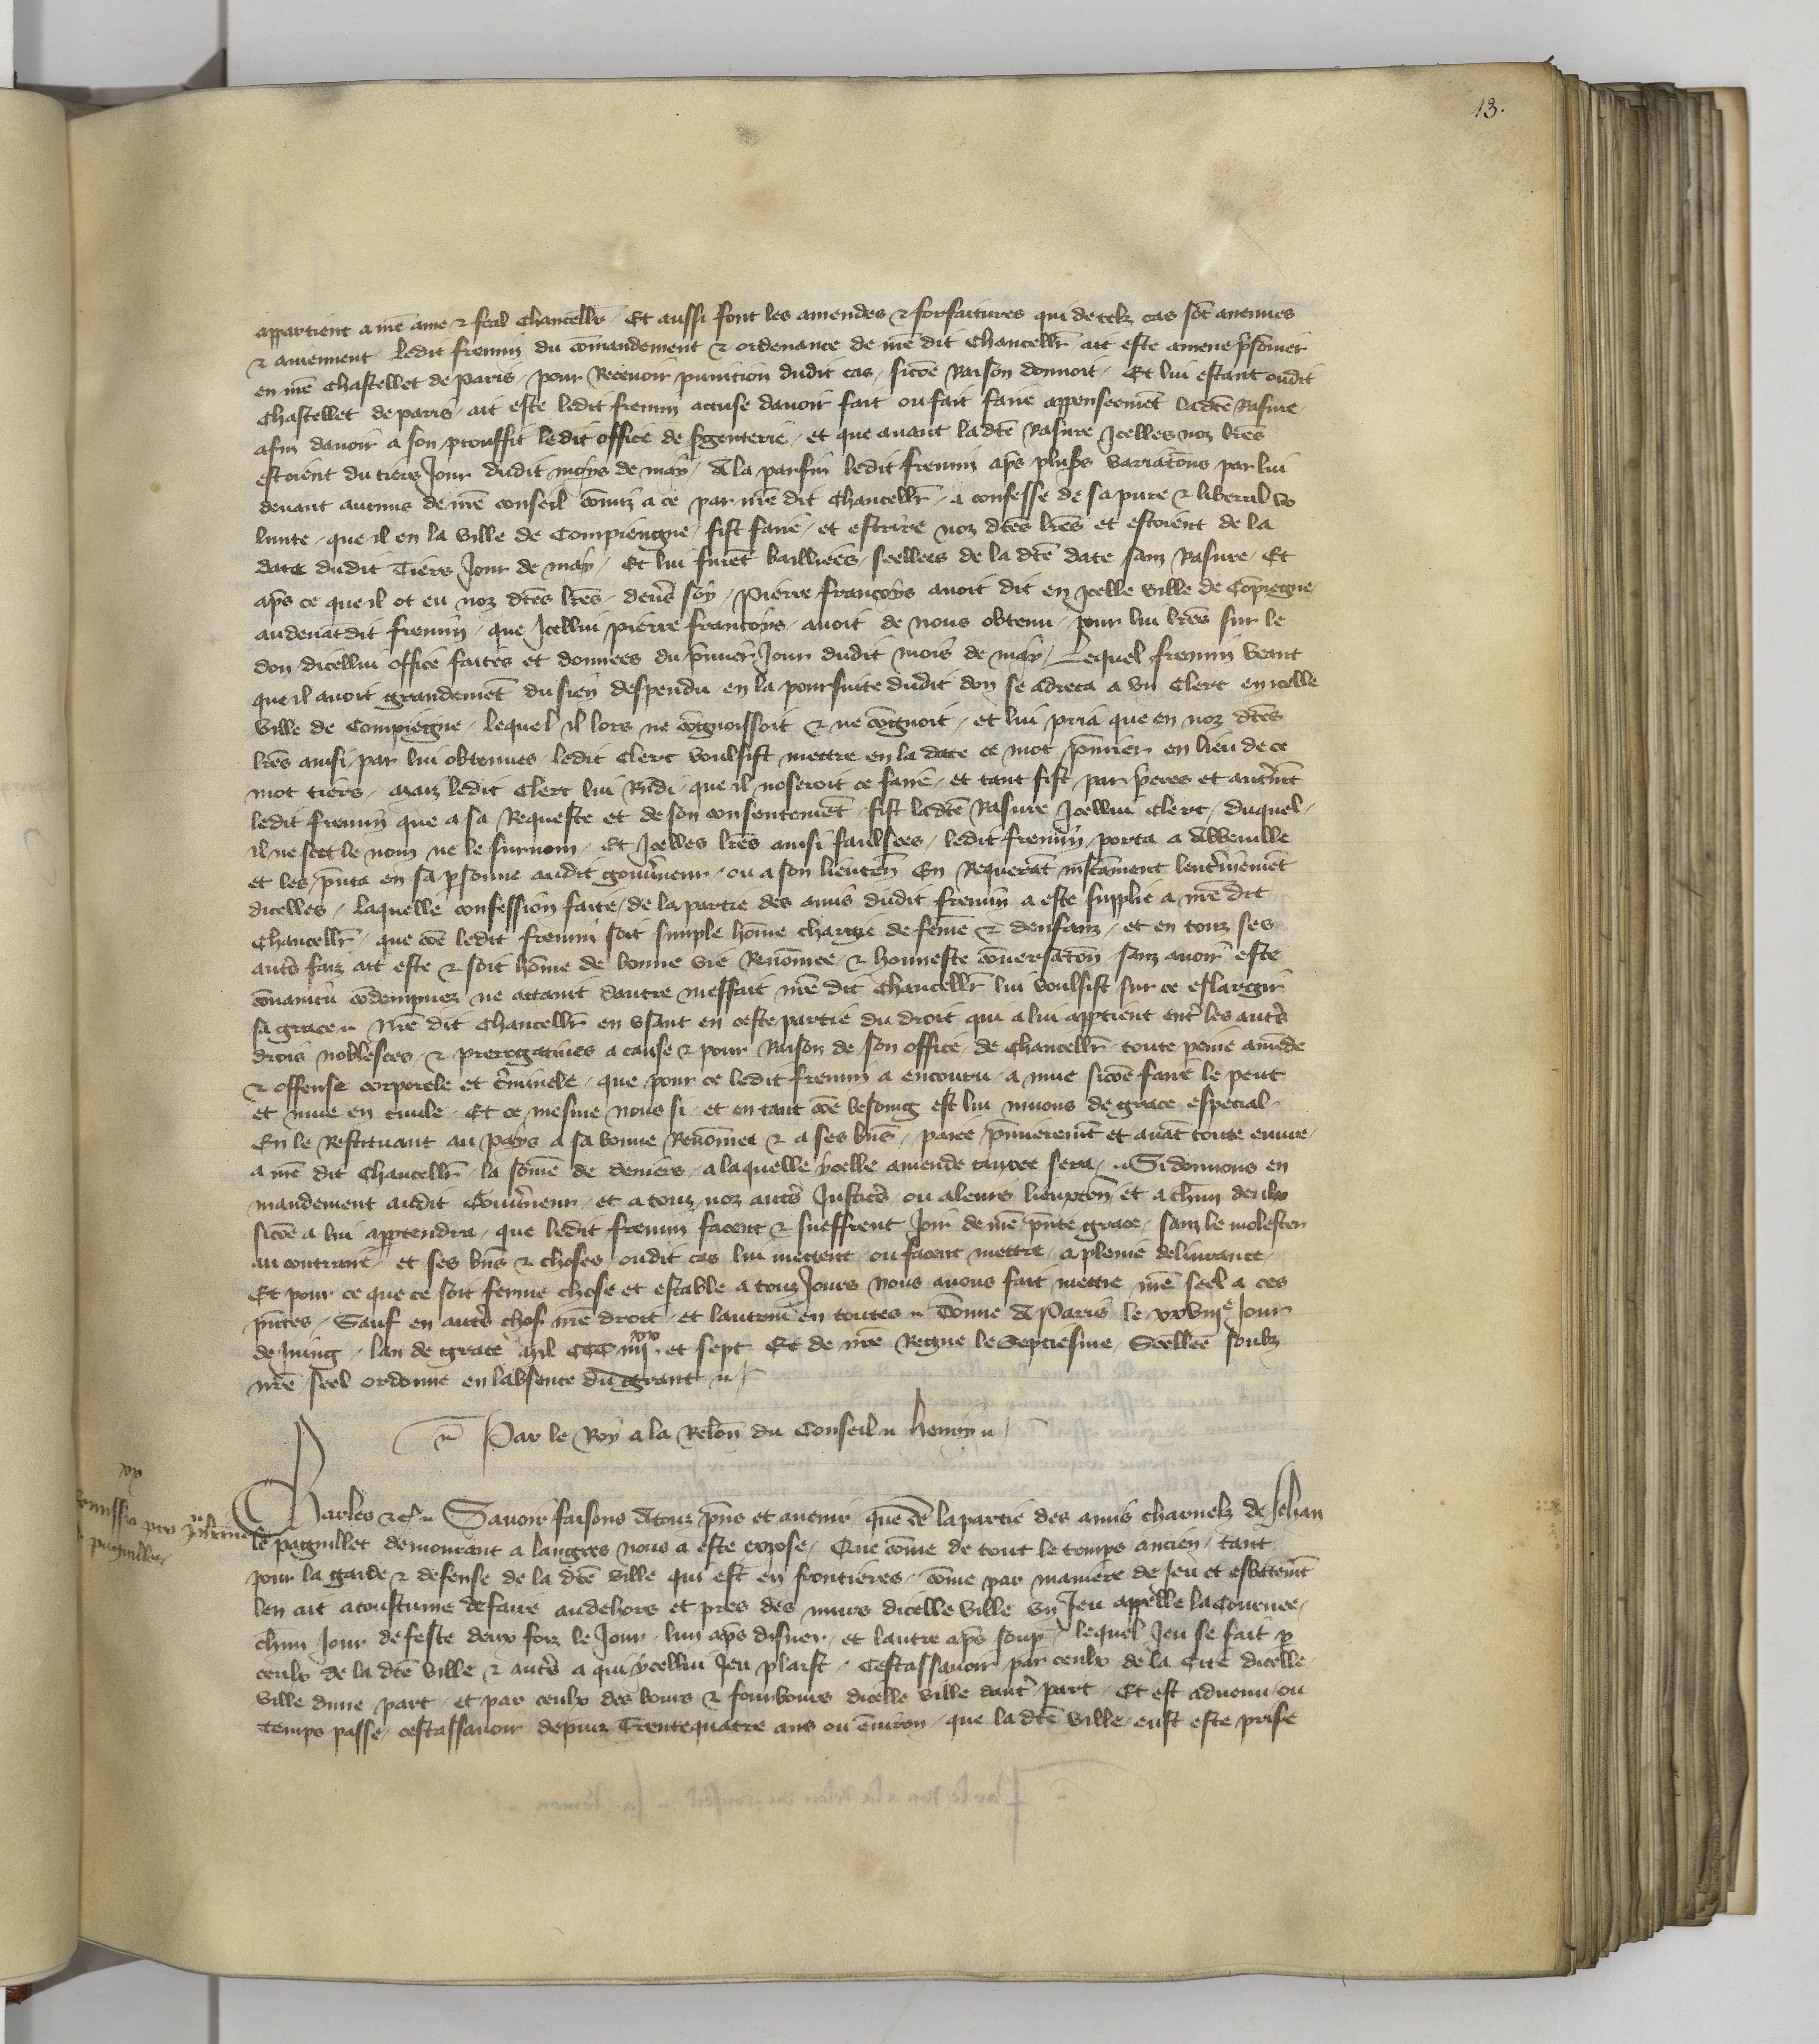 13.
appartient a nr̃e ame & feal Chancellr̃. Et aussi font les amendes & forfaitures qui de telz cas sõt avenues
& aviennent. ledit fremin du cõmandement & ordenance de nr̃e dit Chancellr̃ ait este amene p̃sonnier
en nr̃e Chastellet de Paris, pour Recevoir punicion dudit cas, sicõe Raison donnoit. Et lui estant oudit
Chastellet de paris, ait este ledit fremin accuse davoir fait ou fait faire appenseemẽt ladc̃te Rasure,
afin davoir a son prouffit ledit office de s̃genterie, et que avant ladc̃te Rasure Icelles noz lr̃es
estoient du tiers Jour dudit moys de may, A la parfin ledit fremin ap̃s plus̃rs variacõns par lui
devant aucuns de nr̃e conseil cõmis a ce par nr̃e dit Chancellr̃, a confesse de sa pure & liberal vo
lunte, que il en la ville de Compiengne, fist faire, et escrire noz dc̃tes lr̃es et estoient de la
date dudit Tiers Jour de may, Et lui furẽt bailliees, seellees de la dc̃te date sanz Rasure, Et
ap̃s ce que il ot eu noz dc̃tes lr̃es, deṽs soy, Pierre francoys avoit dit en Icelle ville de Cõpiegne,
audevãtdit fremin, que Icellui pierre francoys, avoit de nous obtenu, pour lui lr̃es sur le
don dicellui office faites et donnees du p̃mier Jour dudit mois de may, Lequel fremin veant
que il avoit grandemẽt du sien despendu en la poursuite dudit don se adreca a un Clerc en icelle
ville de Compiegne, lequel il lors ne cõgnoissoit & ne cõgnoit, et lui pria que en noz dc̃tes
lr̃es ainsi par lui obtenues, ledit Clerc voulsist mettre en la date ce mot p̃mier en lieu de ce
mot tiers, Maiz ledit Clerc lui R̃ndi, que il noseroit ce faire, et tant fist par p̃eres et autr̃mẽt
ledit fremin que a sa Requeste et de son consentemẽt, fist ladc̃te Rasure Icellui Clerc, duquel,
il ne scet le nom ne le surnom, Et Icelles lr̃es ainsi faulsees, ledit fremin, porta a Abbeville
et les p̃nta en sa p̃sonne audit gouṽneur, ou a son lieuteñ En Requerãt instãment lenter̃inemẽt
dicelles, laquelle confession faite, de la partie des amis dudit fremin a este supplie a nr̃e dit
Chancellr̃, que cõe ledit fremin soit simple hõme chargie de fẽme & denfanz, et en touz ses
autr̃s faiz ait este & soit hõme de bonne vie Renõmee & honneste cõversacõn, sanz avoir este
cõvaincu cõdempnez ne attaint dautre meffait nr̃e dit Chancellr̃ lui voulsist sur ce eslargir
sa grace. Nr̃e dit Chancellr̃ en usant en ceste partie du droit qui a lui app̃tient entr̃ les autr̃s
drois noblesces, & prerogatives a cause & pour Raison de son office, de Chancellr̃, toute peine amẽde
& offense corporele et c̃iminele, que pour ce ledit fremin a encouru, a mue sicõe faire le peut
et mue en civile, Et ce mesme nous si, et en tant cõe besoing est lui muons de grace especial,
En le Restituant au pays a sa bonne Renõmee & a ses bñs, paiee p̃mieremẽt et avãt toute euvre,
a nr̃e dit Chancellr̃, la sõme de deniers, a laquelle ycelle amende tauxee sera, Si donnons en
mandement audit Gouṽneur, et a touz noz autr̃s Justic̃s, ou a leurs lieuxteñ et a ch̃un deulx
sicõe a lui app̃tendra, que ledit fremin facent & sueffrent Joir de nr̃e p̃nte grace, sanz le molester
au contraire, et ses bñs & choses, oudit cas lui mettent, ou facent mettre, a pleine delivrance,
Et pour ce que ce soit ferme chose et estable a touz Jours nous avons fait mettre nr̃e seel a ces
p̃ntes, Sauf en autr̃s choses nr̃e droit, et lautrui en toutes. Donne A Paris le xxviijᵉ Jour
de Juing, lan de grace Mil CCC iiijˣˣ et sept Et de nr̃e Regne le Septiesme, Seellee soubz
nr̃e seel ordonne en labsence du grant.
Par le Roy a la Relõn du Conseil. henry.
xx
Remissio pro Joh̃anne
le paguillet
Charles &c̃. Savoir faisons A touz p̃ns et avenir que de la partie des amis charnelz de Jehan
le paguillet demourant a langres nous a este expose, Que cõme de tout le temps ancien, tant
pour la garde & defense de la dc̃te ville qui est en frontieres, cõme par maniere de Jeu et esbatemẽt
len ait acoustume de faire au dehors et pres des murs dicelle ville un Jeu appelle la Tournee,
ch̃un Jour de feste deux foiz le Jour, lun ap̃s disner, et lautre ap̃s soup̃, lequel Jeu se fait p̃
ceulx de la dc̃te ville & autr̃s a qui ycellui Jeu plaist, Cestassavoir par ceulx de la Cite dicelle
ville dune part, et par ceulx des bours & fourbours dicelle ville dautr̃ part, Et est advenu ou
temps passe, cestassavoir depuiz Trentequatre ans ou environ, que la dc̃te ville, eust este prise